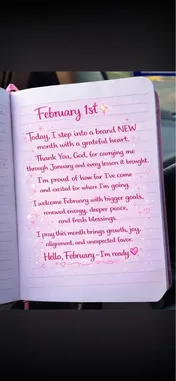 February 1st
Today, I step into a brand NEW
month with a grateful heart.
Thank You, God, for carrying me
through January and every lesson it brought.
I'm proud of how far I've come
and excited for where I'm going.
I welcome February with bigger goals,
renewed energy, deeper peace,
and fresh blessings.
I pray this month brings growth, joy,
alignment, and unexpected favor.
Hello, February – I'm ready